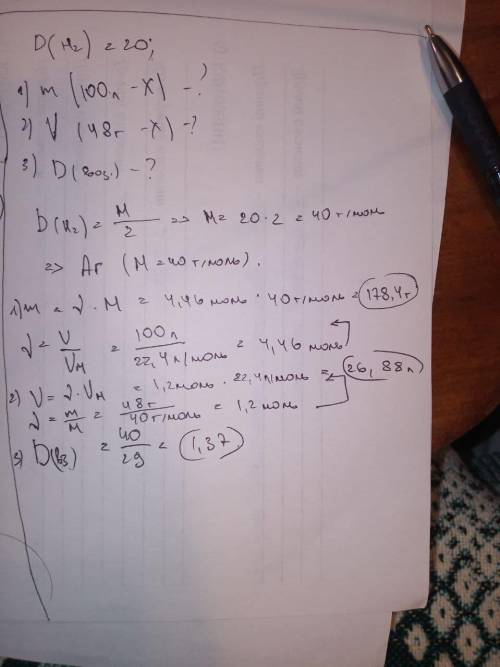 D(H₂) = 20;
1) m (100л - X) - ?
2) V (48г - X) - ?
3) D(возд.) - ?
D(H₂) = M/2 => M = 20 · 2 = 40 г/моль
=> Ar (M = 40 г/моль).
1) m = ν · M = 4,46 моль · 40 г/моль = 178,4 г
ν = V/Vм = 100л/22,4л/моль = 4,46 моль
2) V = ν · Vм = 1,2 моль · 22,4л/моль = 26,88 л
ν = m/M = 48г/40г/моль = 1,2 моль
3) D(вз) = 40/29 = 1,37